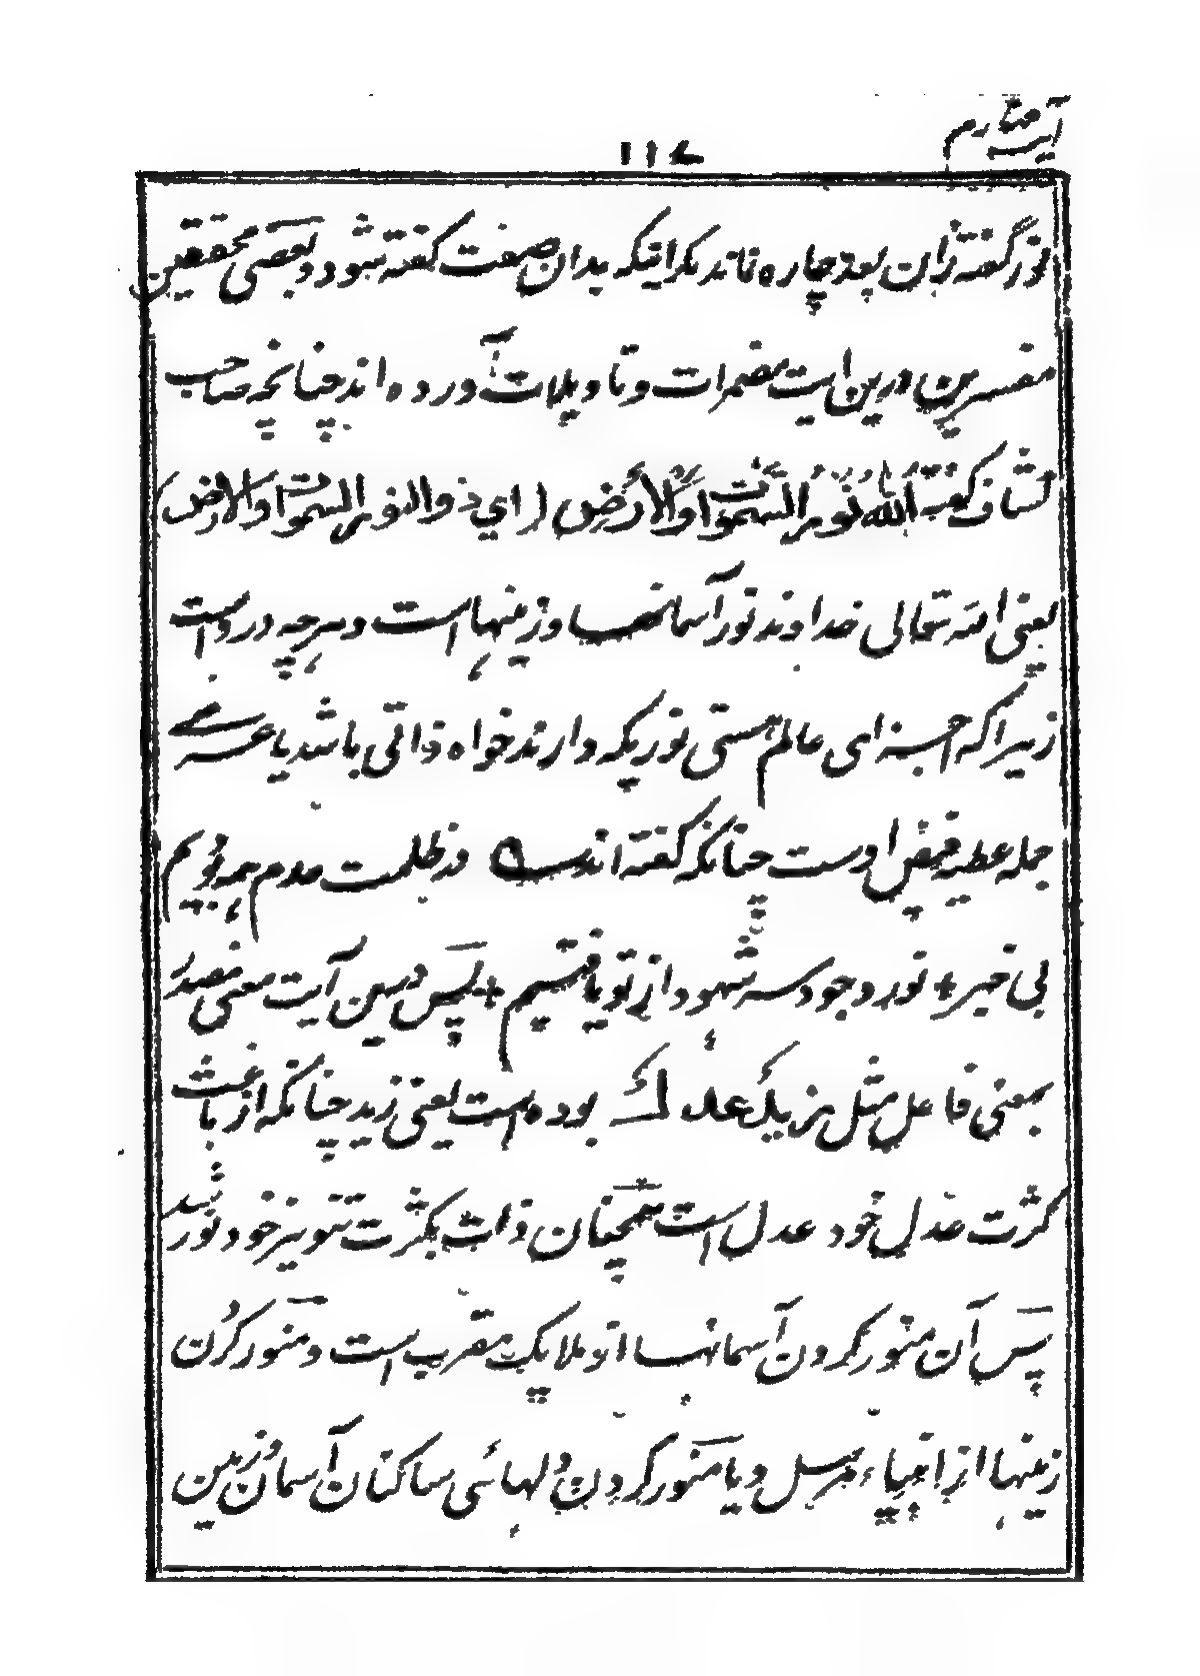 آیت چهارم
۱۱۴
نور گفته زان بعد چاره نماند مگر اینکه بدان صفت گفته شود و بعضی محققین
مفسرین درین ایت مضمرات و تاویلات آورده اند چنانچه صاحب
کشاف گفته اَللهُ نُورُ السَّمٰوَاتِ وَالْاَرْضِ ( ای ذوالنور السموات والارض )
یعنی الله تعالی خداوند نور آسمانها و زمینها است و هرچه دروست
زیرا که اجزای عالم هستی نوریکه دارند خواه ذاتی باشد یا عرضی
جمله عطیه فیض اوست چنانکه گفته اند در ظلمت عدم همه بودیم
بی خبر + نور وجود سر شهود از تو یافتیم + پس درین آیت معنی مصدر
بمعنی فاعل مثل زیدٌ عدلٌ بوده است یعنی زید چنانکه از باعث
کثرت عدل خود عدل است همچنان ذات بکثرت تنویر خود نور شد
پس آن منور کردن آسمانها از ملایک مقرب است و منور کردن
زمینها از انبیاء مرسل و یا منور کردن دلهائی ساکنان آسمان و زمین